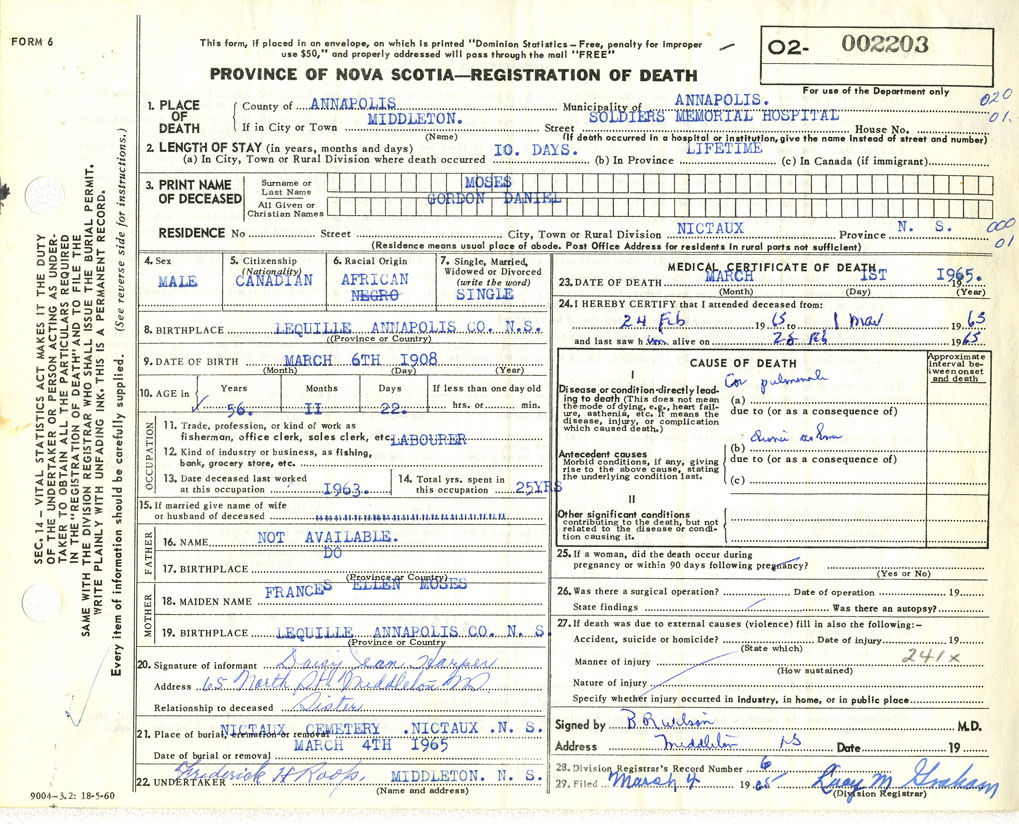 FORM 6
This form, if placed in an envelope, on which is printed "Dominion Statistics – Free, penalty for improper
use $50," and properly addressed will pass through the mail "FREE"
02- 002203
For use of the Department only
PROVINCE OF NOVA SCOTIA—REGISTRATION OF DEATH
1. PLACE OF DEATH
County of ANNAPOLIS Municipality of ANNAPOLIS. 020
If in City or Town MIDDLETON. Street SOLDIERS MEMORIAL HOSPITAL House No. 01.
(Name) (If death occurred in a hospital or institution, give the name instead of street and number)
2. LENGTH OF STAY (in years, months and days)
(a) In City, Town or Rural Division where death occurred 10. DAYS. (b) In Province LIFETIME (c) In Canada (if immigrant)
3. PRINT NAME OF DECEASED
Surname or Last Name MOSES
All Given or Christian Names GORDON DANIEL
RESIDENCE No Street City, Town or Rural Division NICTAUX Province N. S. 000
01
(Residence means usual place of abode. Post Office Address for residents in rural parts not sufficient)
4. Sex MALE
5. Citizenship (Nationality) CANADIAN
6. Racial Origin AFRICAN NEGRO
7. Single, Married, Widowed or Divorced (write the word) SINGLE
8. BIRTHPLACE LEQUILLE ANNAPOLIS CO. N.S.
((Province or Country)
9. DATE OF BIRTH MARCH 6TH 1908
(Month) (Day) (Year)
10. AGE in Years Months Days If less than one day old
56. II 22. hrs. or min.
OCCUPATION
11. Trade, profession or kind of work as
fisherman, office clerk, sales clerk, etc. LABOURER
12. Kind of industry or business, as fishing,
bank, grocery store, etc.
13. Date deceased last worked at this occupation 1963.
14. Total yrs. spent in this occupation 25YRS
15. If married give name of wife
or husband of deceased
FATHER
16. NAME NOT AVAILABLE.
17. BIRTHPLACE DO
(Province or Country)
MOTHER
18. MAIDEN NAME FRANCES ELLEN MOSES
19. BIRTHPLACE LEQUILLE ANNAPOLIS CO. N. S.
(Province or Country)
20. Signature of informant Daisy Jean Harper
Address 65 North St. Middleton NS
Relationship to deceased Sister
21. Place of burial, cremation or removal NICTAUX CEMETERY .NICTAUX .N. S.
Date of burial or removal MARCH 4TH 1965
22. UNDERTAKER Frederick H Roop. MIDDLETON. N. S.
(Name and address)
MEDICAL CERTIFICATE OF DEATH
23. DATE OF DEATH MARCH 1ST 19 1965.
(Month) (Day) (Year)
24. I HEREBY CERTIFY that I attended deceased from:
24 Feb 1965 to 1 Mar 1965
and last saw him alive on 28 Feb 1965
CAUSE OF DEATH
Approximate interval between onset and death
I
Disease or condition directly leading to death (This does not mean the mode of dying, e.g., heart failure, asthenia, etc. It means the disease, injury, or complication which caused death.)
(a) Cor pulmonale
due to (or as a consequence of)
Antecedent causes
Morbid conditions, if any, giving rise to the above cause, stating the underlying condition last.
(b) Chronic asthma
due to (or as a consequence of)
(c)
II
Other significant conditions
contributing to the death, but not related to the disease or condition causing it.
25. If a woman, did the death occur during
pregnancy or within 90 days following pregnancy?
(Yes or No)
26. Was there a surgical operation? Date of operation 19
State findings Was there an autopsy?
27. If death was due to external causes (violence) fill in also the following:–
Accident, suicide or homicide? Date of injury 19
(State which) 241x
Manner of injury
(How sustained)
Nature of injury
Specify whether injury occurred in industry, in home, or in public place
Signed by B R Wilson M.D.
Address Middleton NS Date 19
28. Division Registrar's Record Number 6
29. Filed March 4 1965 Lucy M Graham
(Division Registrar)
SEC. 14 – VITAL STATISTICS ACT MAKES IT THE DUTY
OF THE UNDERTAKER OR PERSON ACTING AS UNDER-
TAKER TO OBTAIN ALL THE PARTICULARS REQUIRED
IN THE "REGISTRATION OF DEATH" AND TO FILE THE
SAME WITH THE DIVISION REGISTRAR WHO SHALL ISSUE THE BURIAL PERMIT.
WRITE PLAINLY WITH UNFADING INK. THIS IS A PERMANENT RECORD.
Every item of information should be carefully supplied. (See reverse side for instructions.)
9004–3.2: 18-5-60